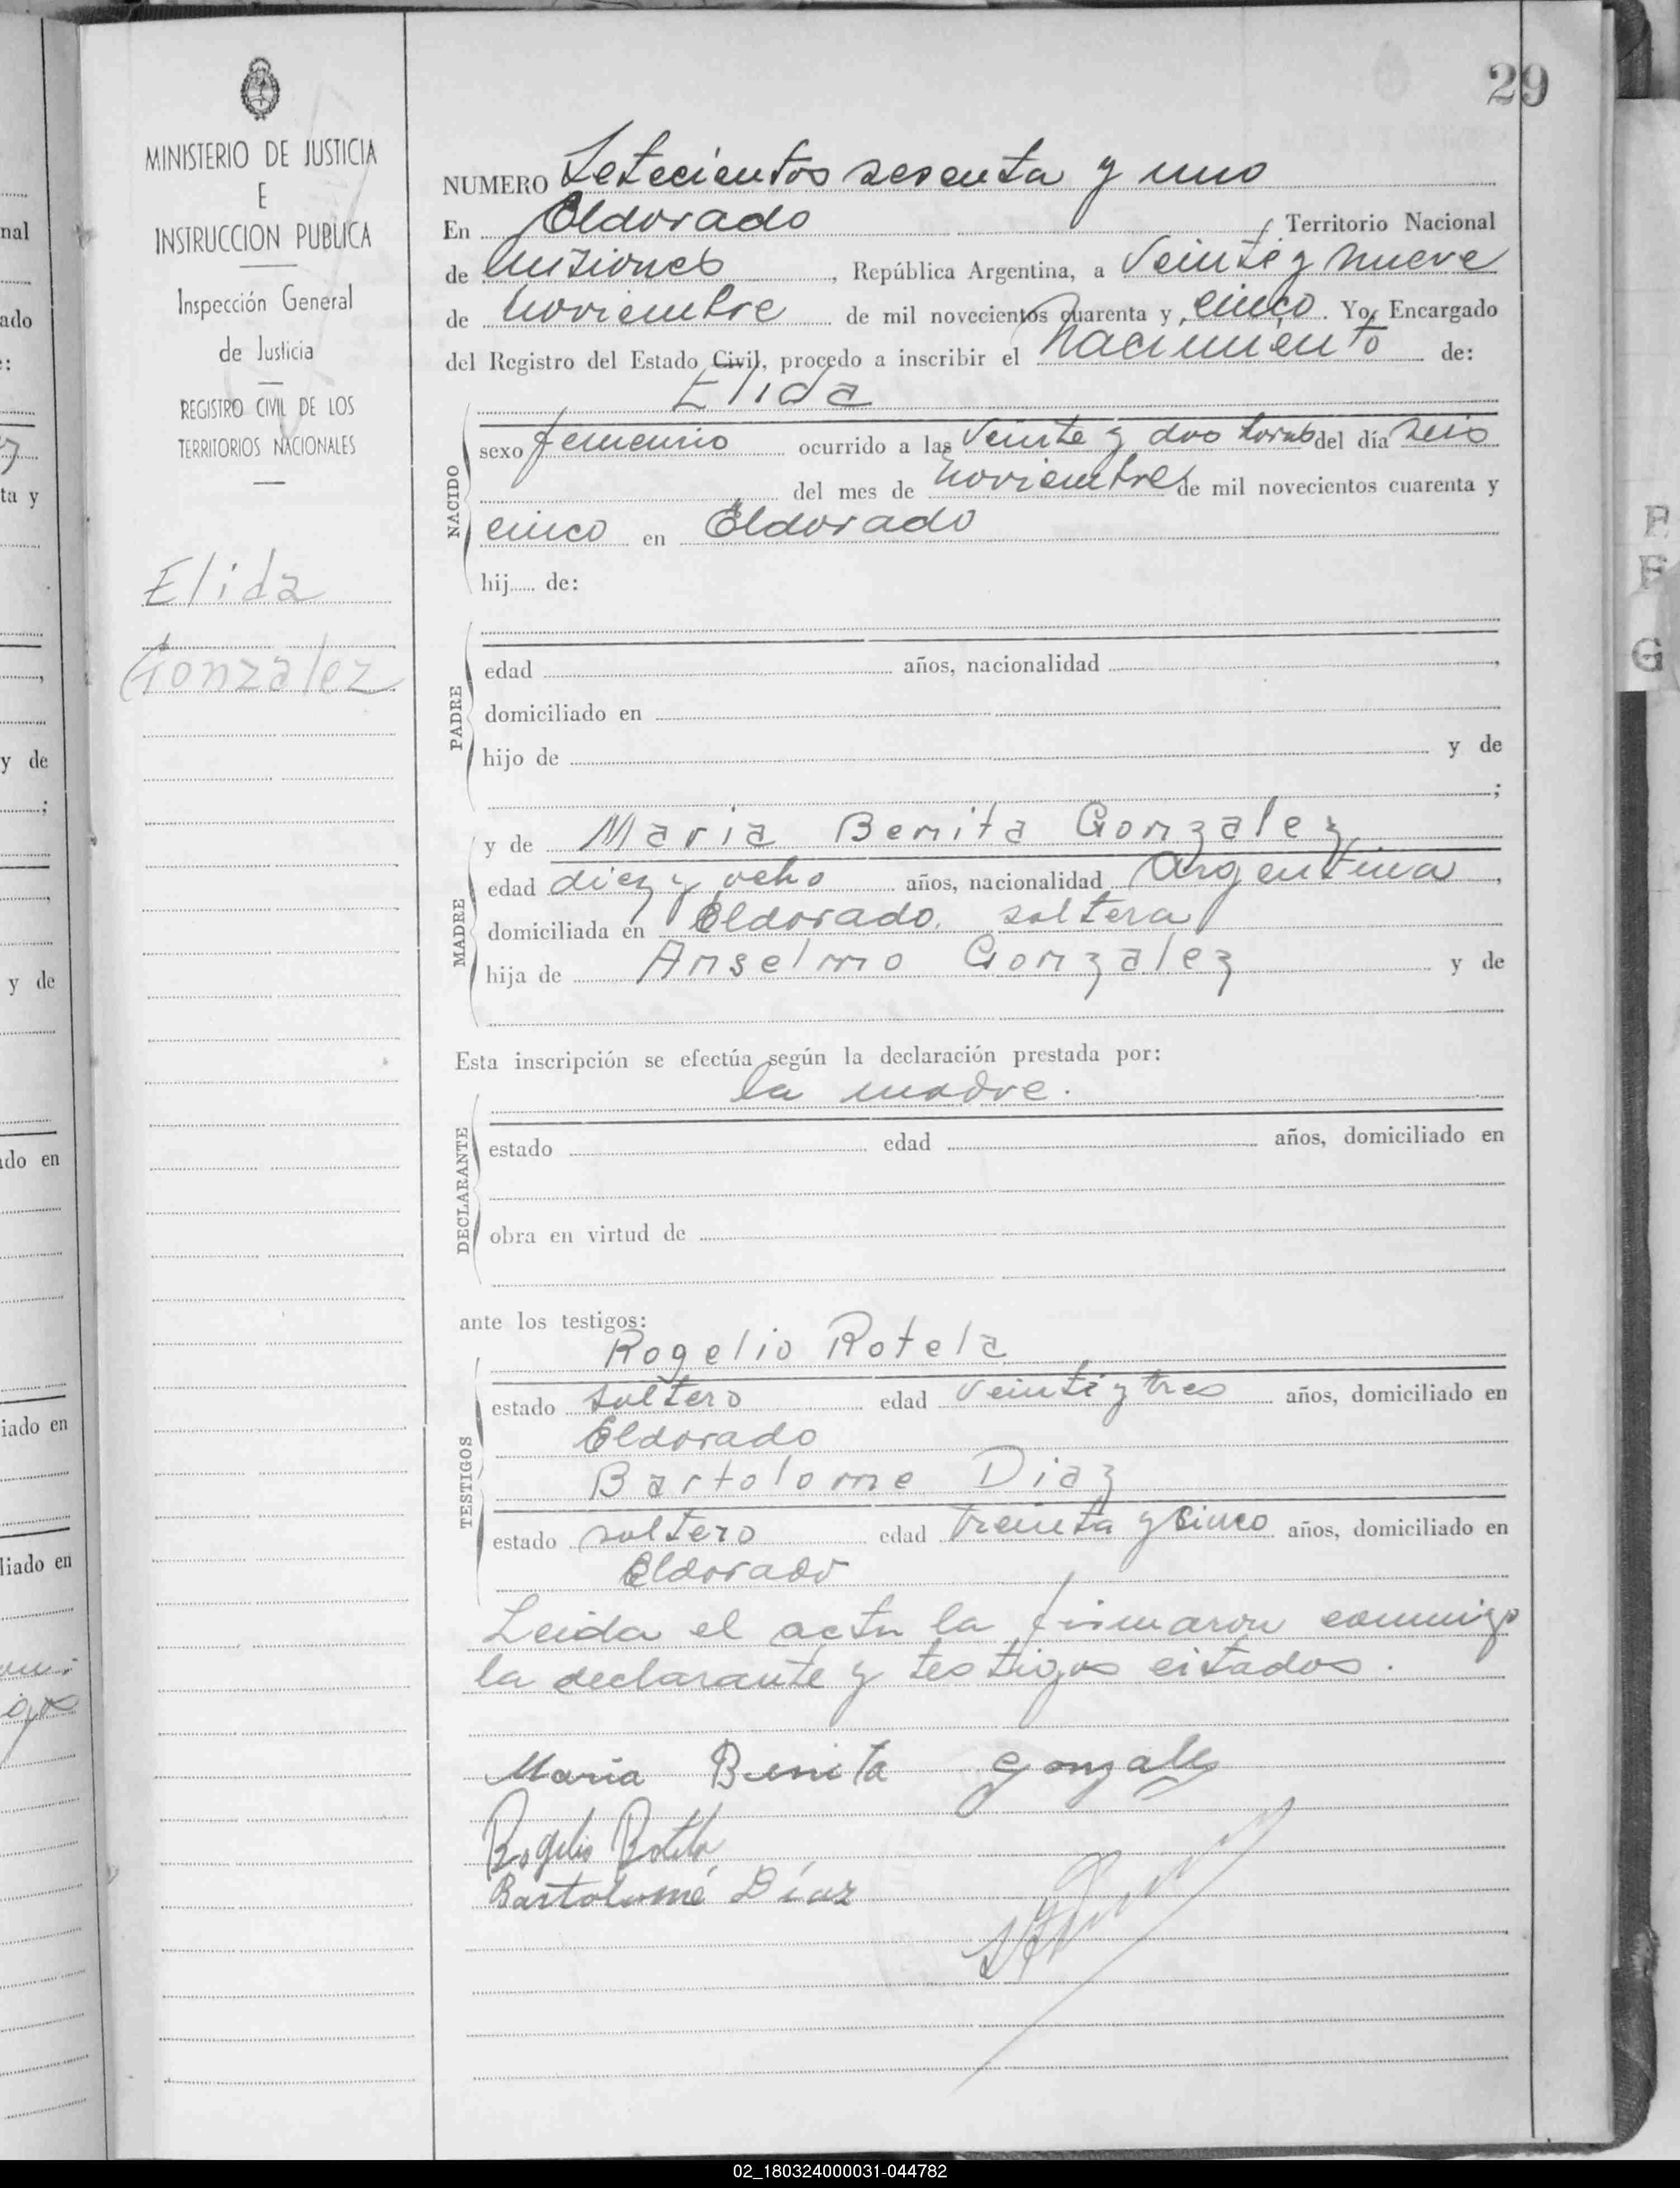 29
MINISTERIO DE JUSTICIA
E
INSTRUCCION PUBLICA
Inspección General
de Justicia
REGISTRO CIVIL DE LOS
TERRITORIOS NACIONALES
Elida
Gonzalez
NUMERO Setecientos sesenta y uno
En Eldorado, Territorio Nacional
de Misiones, República Argentina, a Veinte y nueve
de Noviembre de mil novecientos cuarenta y cinco. Yo, Encargado
del Registro del Estado Civil, procedo a inscribir el Nacimiento de:
Elida
NACIDO
sexo femenino ocurrido a las Veinte y dos horas del día Seis
del mes de Noviembre de mil novecientos cuarenta y
cinco en Eldorado
hij..... de:
PADRE
edad años, nacionalidad ,
domiciliado en
hijo de y de
;
MADRE
y de Maria Benita Gonzalez
edad diez y ocho años, nacionalidad Argentina,
domiciliada en Eldorado, soltera
hija de Anselmo Gonzalez y de
Esta inscripción se efectúa según la declaración prestada por:
la madre.
DECLARANTE
estado edad años, domiciliado en
obra en virtud de
ante los testigos:
TESTIGOS
Rogelio Rotela
estado soltero edad veinte y tres años, domiciliado en
Eldorado
Bartolome Diaz
estado soltero edad treinta y cinco años, domiciliado en
Eldorado
Leida el acta la firmaron conmigo
la declarante y testigos citados.
Maria Benita Gonzalez
Rogelio Rotela
Bartolomé Díaz
nal
ado
:
ta y
y de
;
y de
ado en
iado en
liado en
P
F
G
02_180324000031-044782